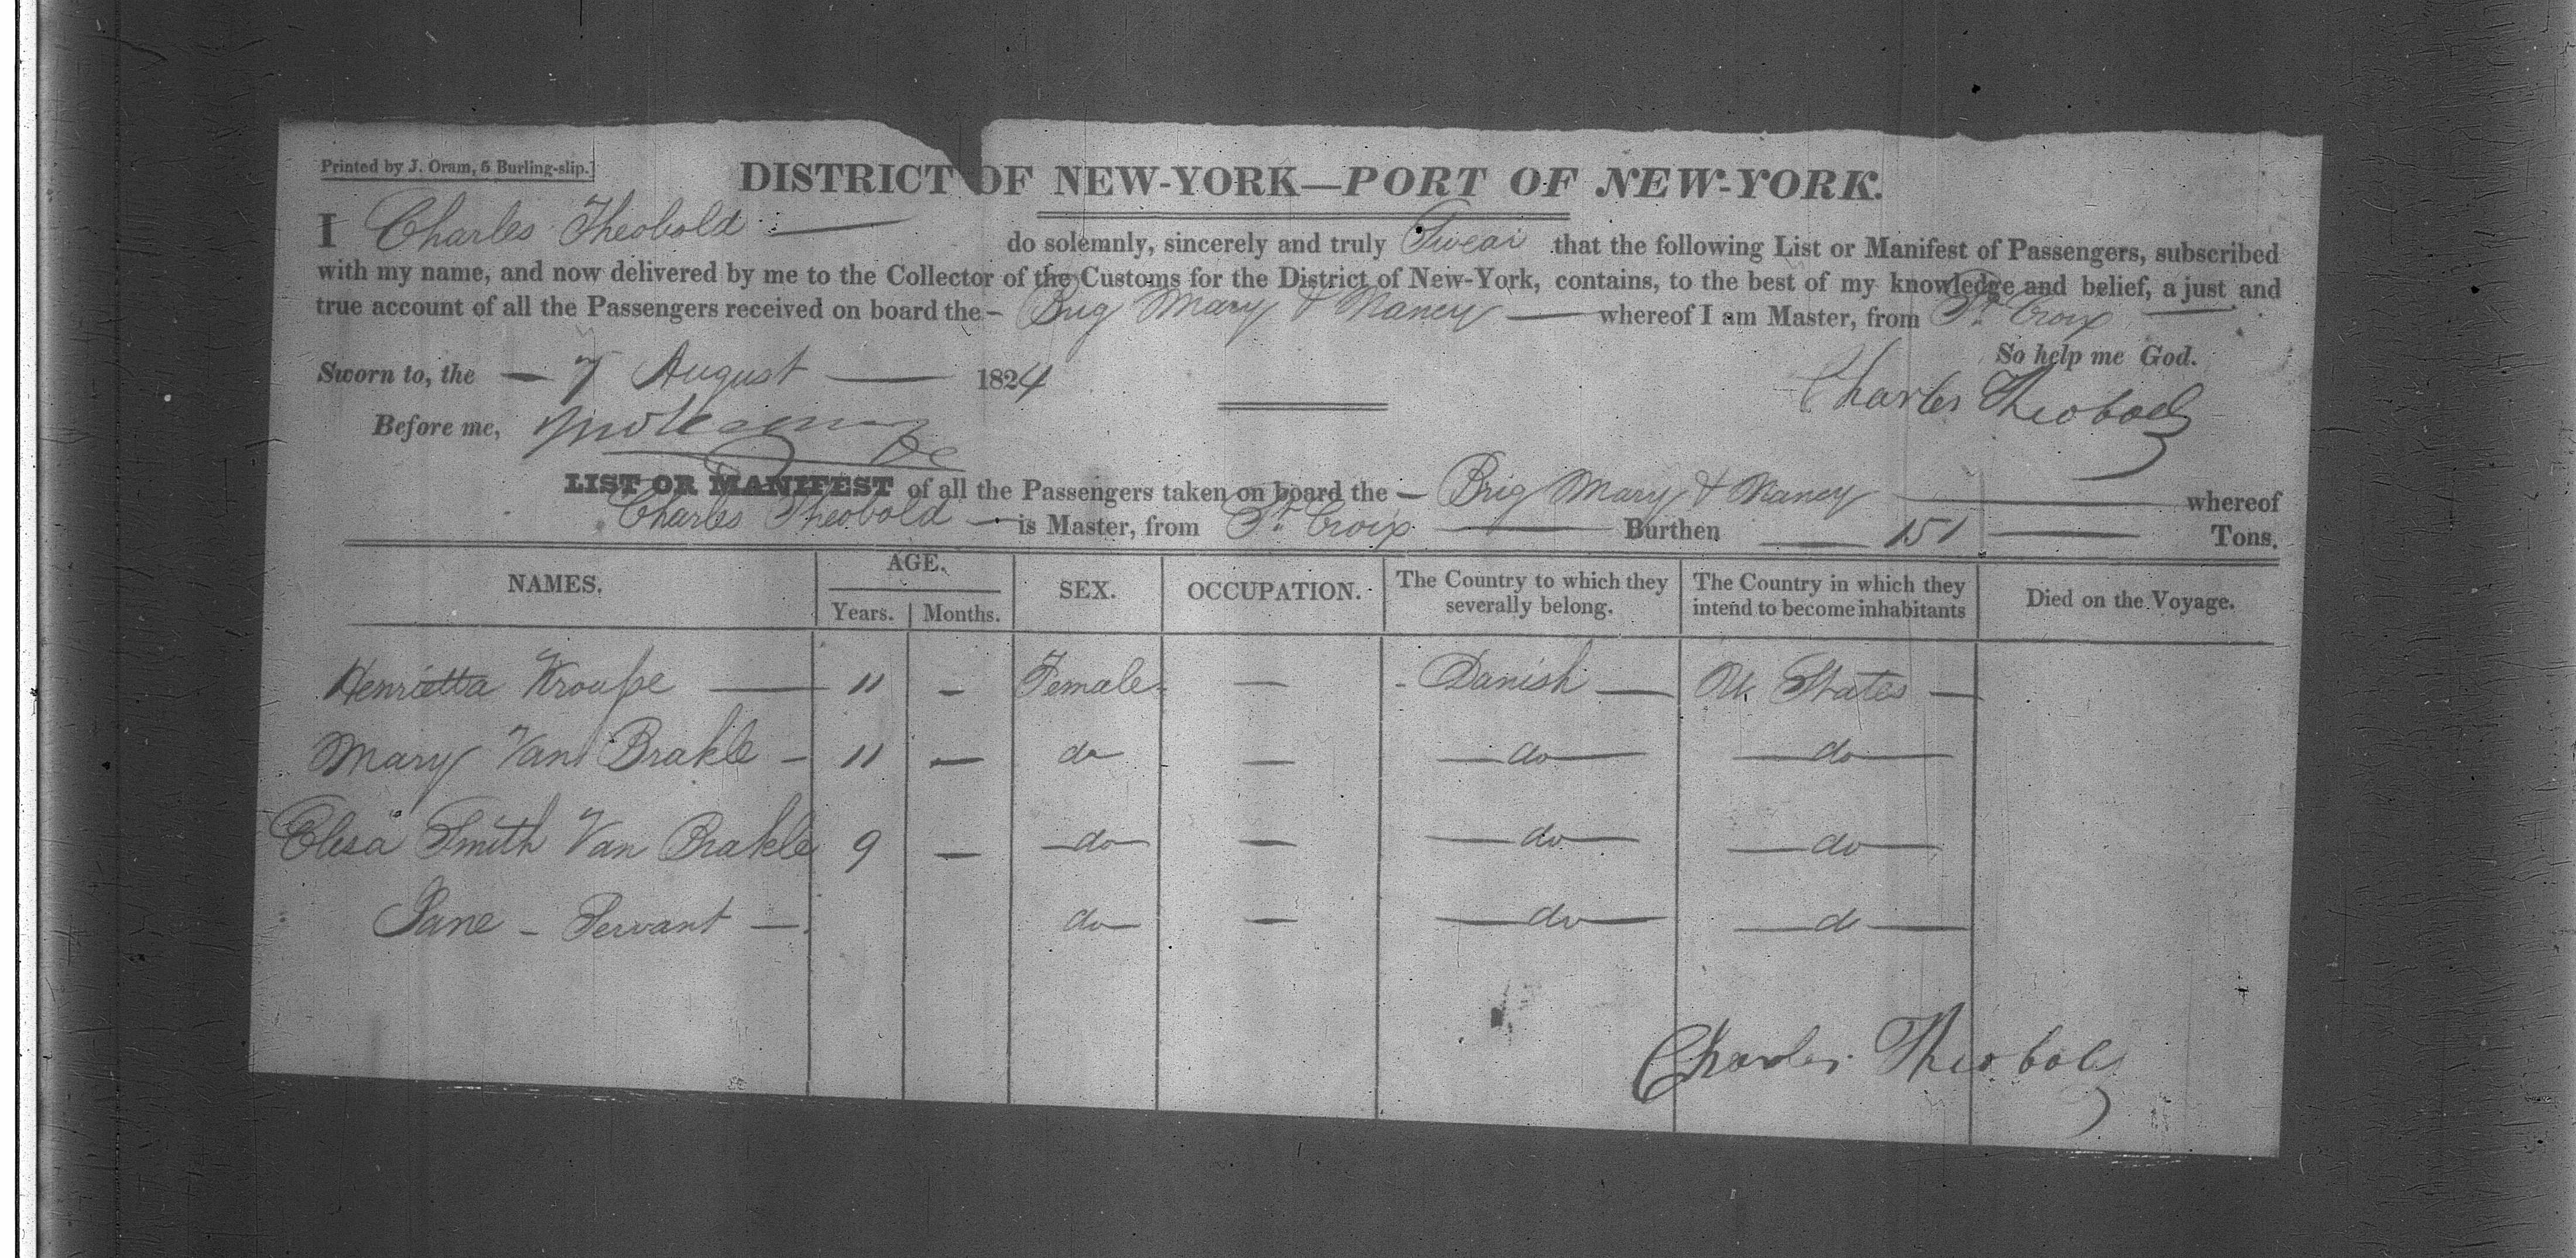 Printed by J. Oram, 5 Burling-slip.]
DISTRICT OF NEW-YORK—PORT OF NEW-YORK.
I Charles Theobold — do solemnly, sincerely and truly Swear that the following List or Manifest of Passengers, subscribed
with my name, and now delivered by me to the Collector of the Customs for the District of New-York, contains, to the best of my knowledge and belief, a just and
true account of all the Passengers received on board the – Brig Mary & Nancy — whereof I am Master, from St. Croix —
So help me God.
Sworn to, the — 7 August — 1824
Charles Theobold
Before me,
LIST OR MANIFEST of all the Passengers taken on board the – Brig Mary & Nancy — whereof
Charles Theobold — is Master, from St. Croix — Burthen — 151 — Tons.
NAMES. AGE. Years. Months. SEX. OCCUPATION. The Country to which they severally belong. The Country in which they intend to become inhabitants Died on the Voyage.
Henrietta — 11 – Female – — - Danish — U States —
Mary Van Brakle – 11 — do — — do — — do —
Elisa Smith Van Brakle 9 — — do — — — do — — do —
Jane – Servant — do — — — do — — do —
Charles Theobold